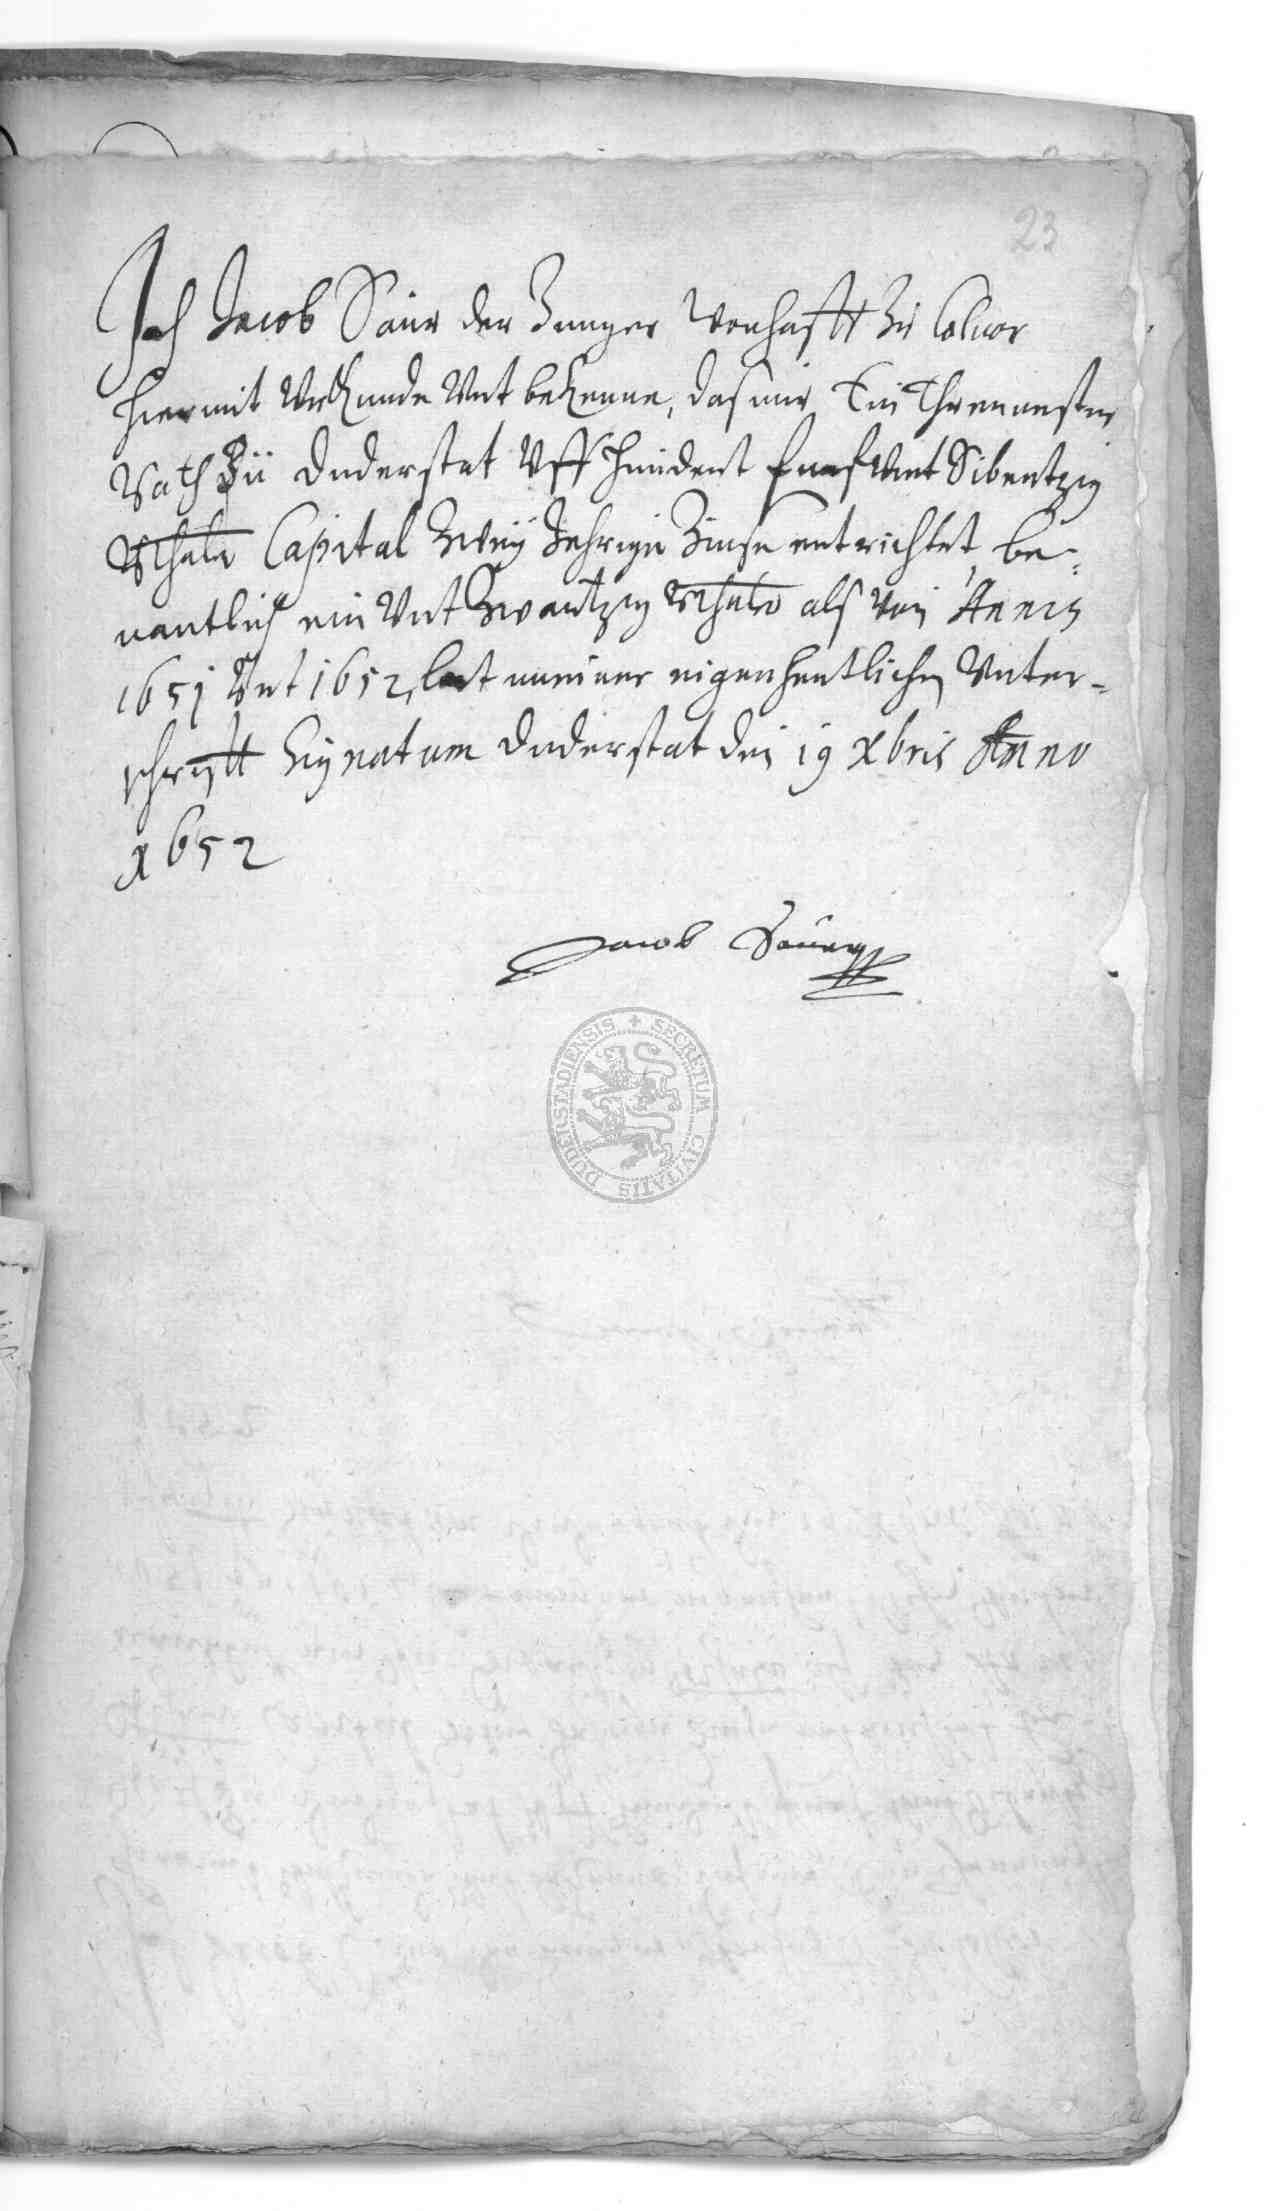 23
Ich Jacob Saur der Junger Wonhafftt Zu
hiermit Urkunde Unt bekenne, das mir Ein
Rath Zu Duderstat Uff hundert funf Unt Sibentzig
Rthaler Capital Zweij Jehrige Zinse entrichtet, be-
nantlich ein Unt Zwantzig Rthaler als von Annis
1651 Unt 1652, laut meiner eigenhentlichen Unter-
schryfft Signatum Duderstat den 19 Xbris Anno
1652
Jacob Saur
DUDERSTADIENSIS + SECRETUM CIVITATIS